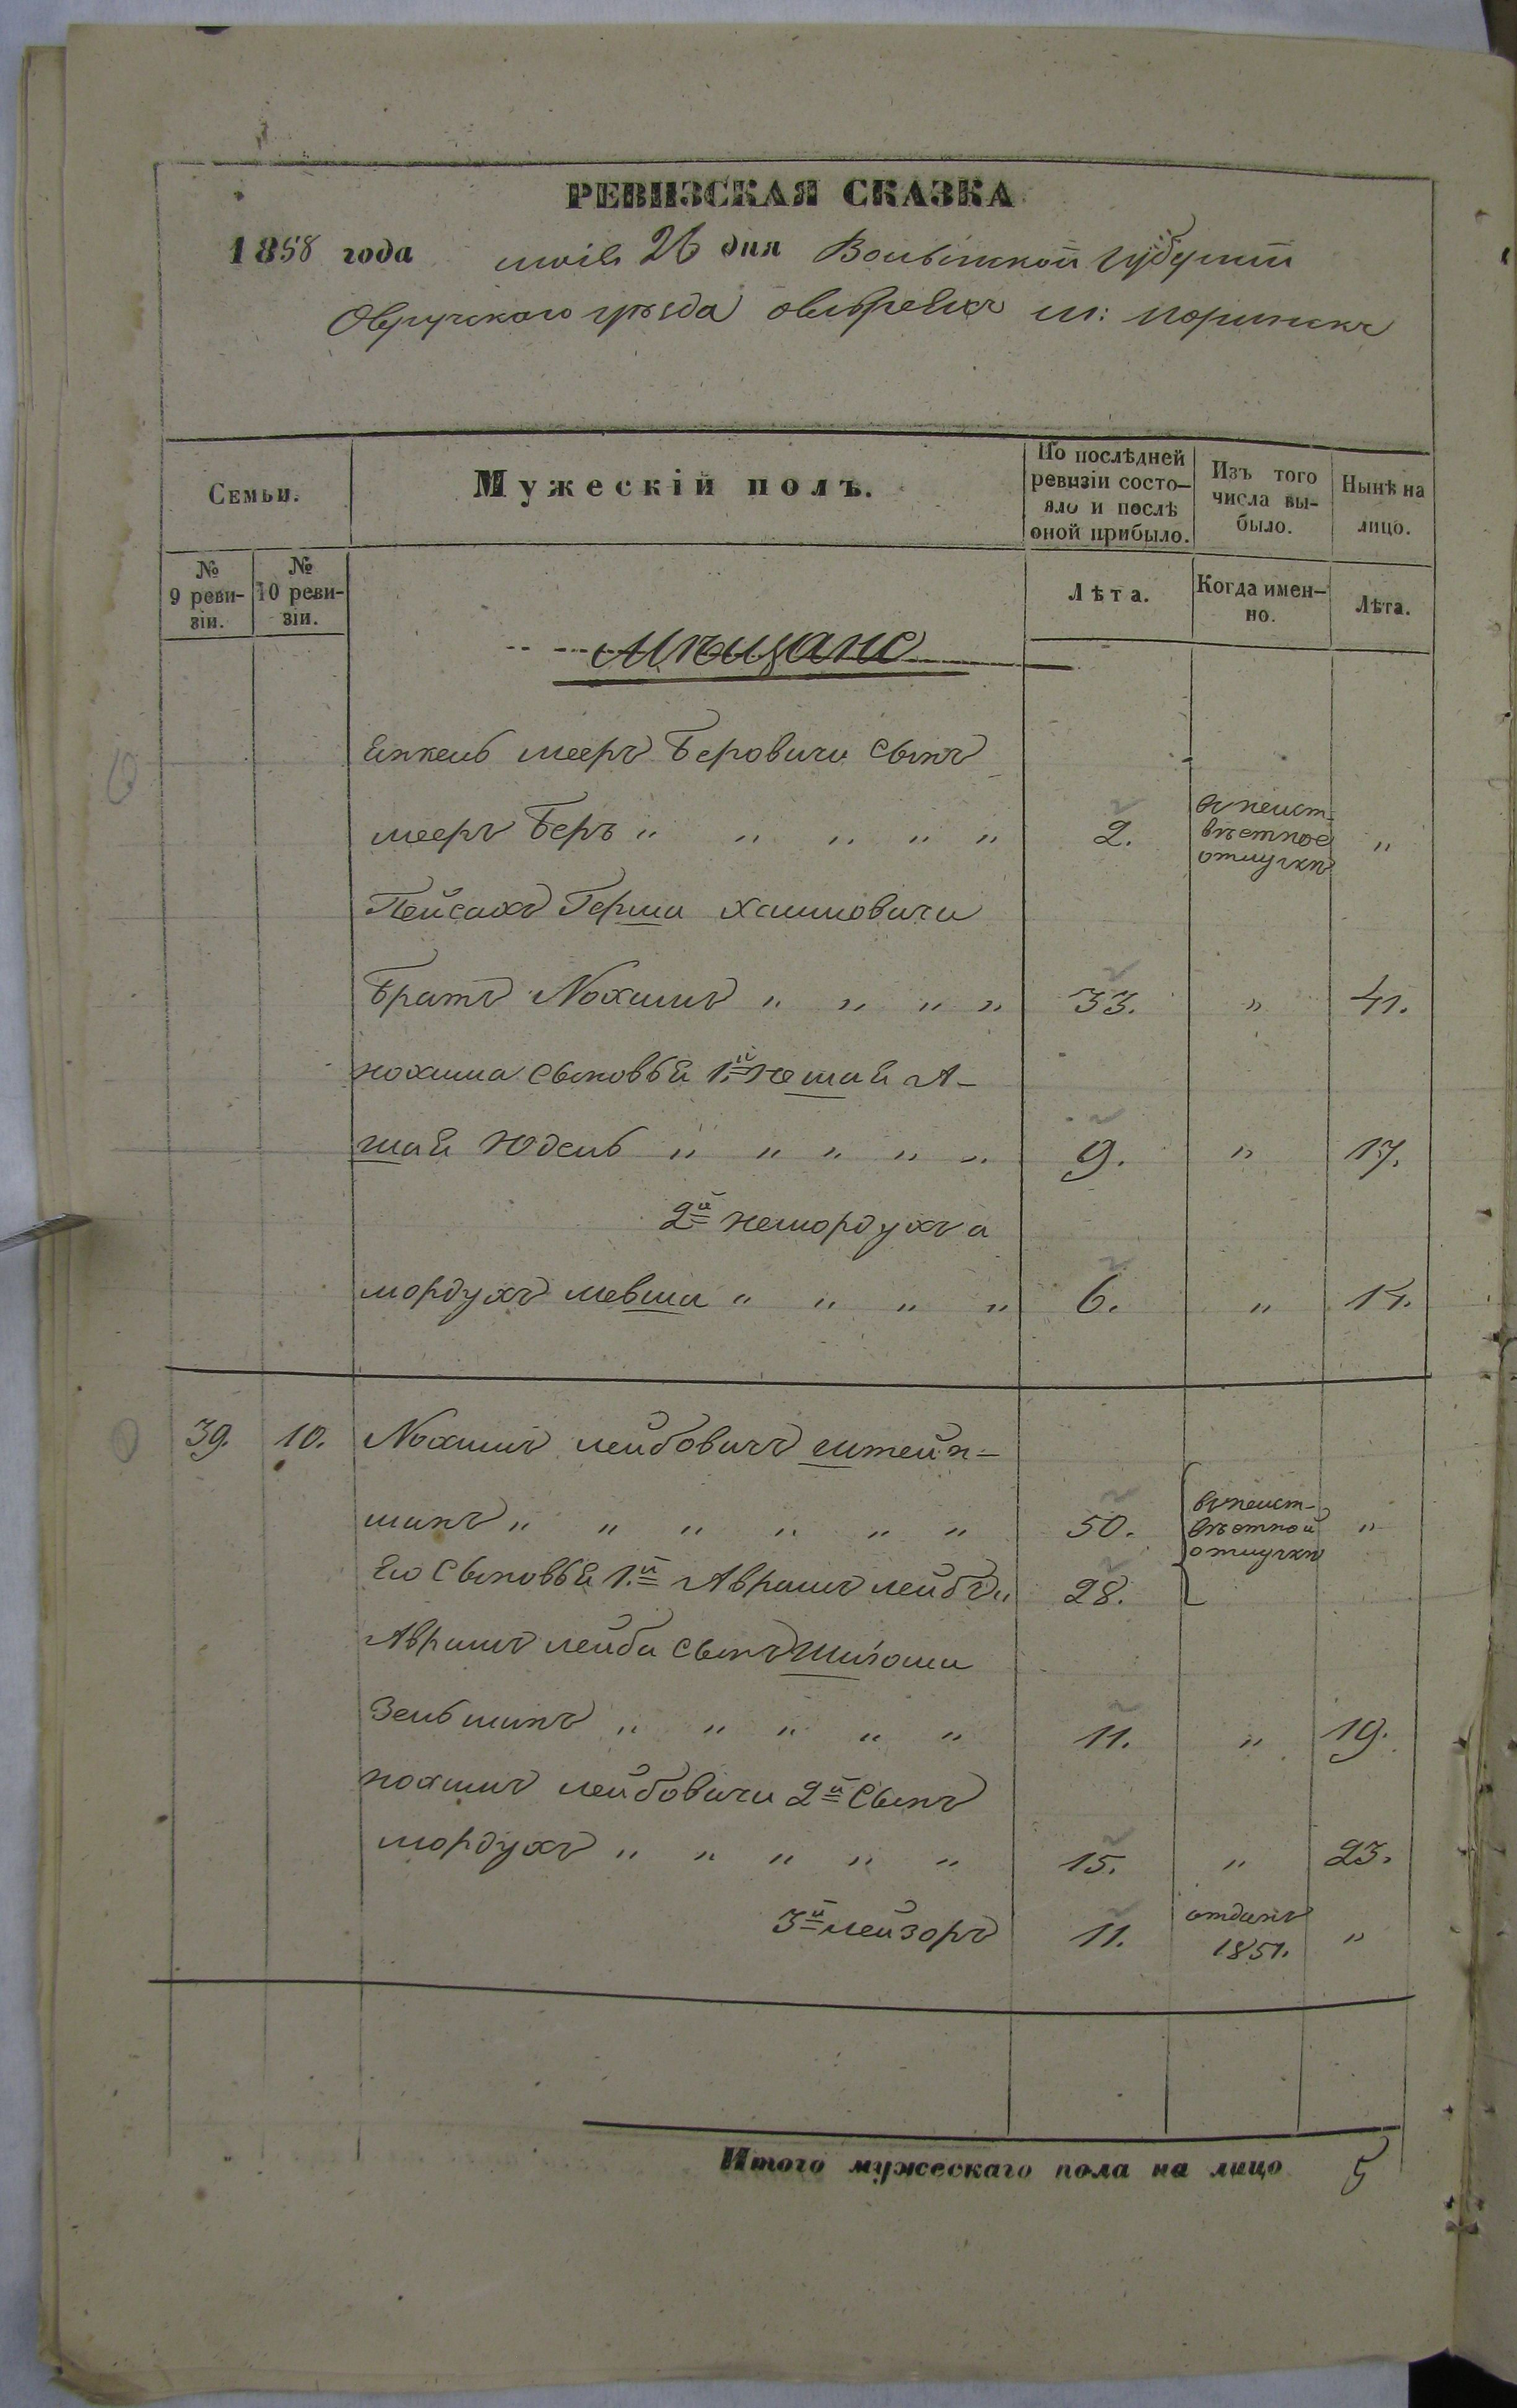 РЕВИЗСКАЯ СКАЗКА
1858 года июня 26 дня Волынской губернии
Овручского уѣзда о евреяхъ м: Норинскъ
Семьи.
Мужескій полъ.
По послѣдней ревизіи состо-
яло и послѣ оной прибыло.
Изъ того числа вы-
было.
Нынѣ на лицо.
№ 9 реви-
зіи.
№ 10 реви-
зіи.
Лѣта.
Когда имен-
но.
Лѣта.
Мѣщане
Янкель Мееръ Беровича сынъ
Мееръ Беръ " " " " " 2. въ неизт-
вѣстное отлучкѣ "
Пейсахъ Герша Хаимовича
Братъ Нохимъ " " " " 33. " 41.
Нохима сыновья 1й не Шая а
Шая Юдель " " " " " 9. " 17.
2й не Мордухъ а
Мордухъ Мевша " " " " 6. " 14.
39. 10. Нохимъ Лейбовичъ Штейн-
манъ " " " " " " 50. въ неизт-
вѣстной отлучкѣ "
Его сыновья 1й Аврамъ Лейбъ " 28.
Аврамъ Лейба сынъ Шлёма
Зельманъ " " " " " 11. " 19.
Нохимъ Лейбовича 2й сынъ
Мордухъ " " " " " 15. " 23.
3й Лейзоръ 11. отданъ 1851. "
Итого мужескаго пола на лицо 5